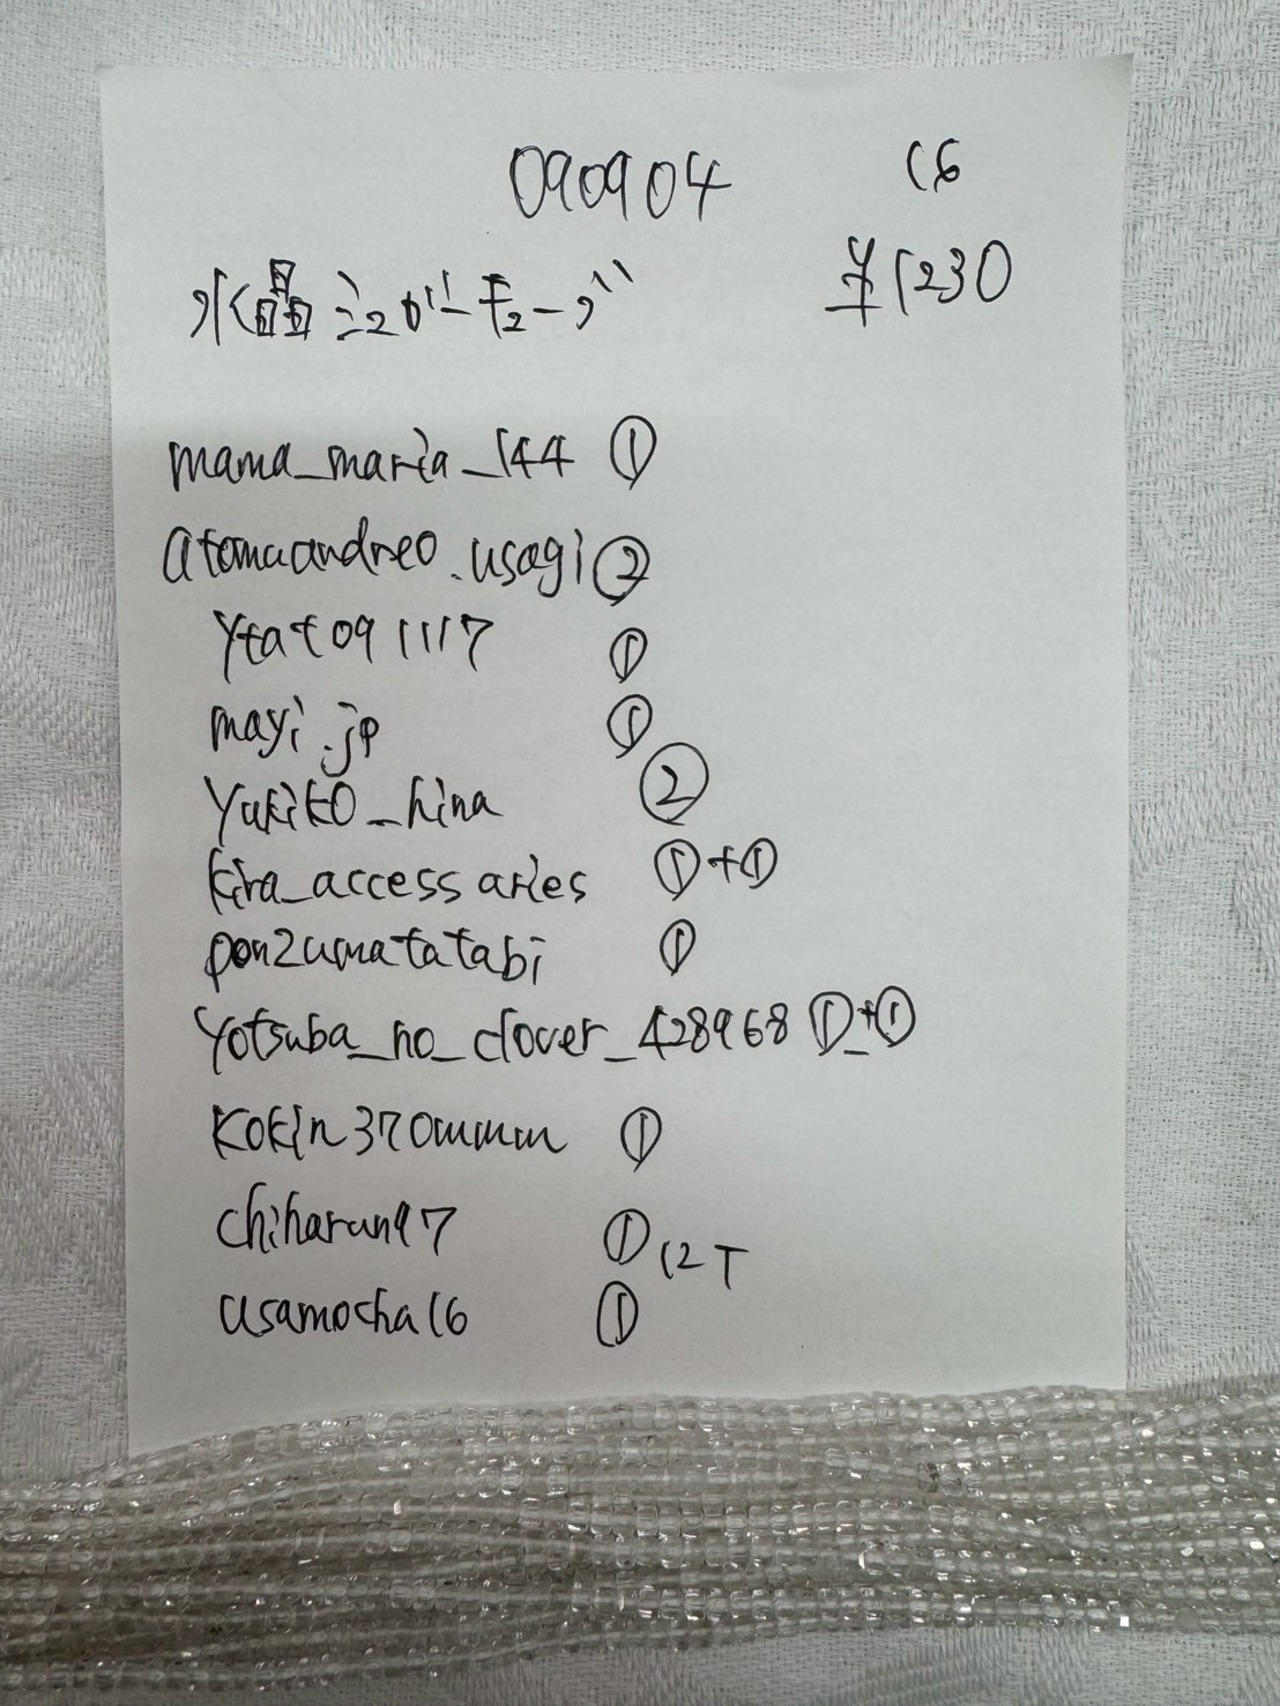 090904 16
水晶ミックキューブ ¥1230
mama_maria_144 ①
atomuandreo.usagi ②
ytat091117 ①
mayi.jp ①
Yukiko_hina ②
kira_accessaries ①+①
ponzumatatabi ①
yotsuba_no_clover_428968 ①+①
kokin370mmm ①
chiharun97 ① 12T
usamocha16 ①